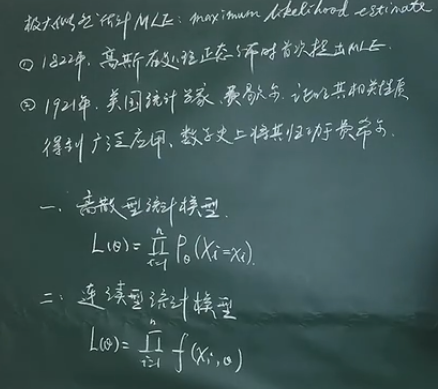 极大似然估计 MLE: maximum likelihood estimate
① 1822年, 高斯在处理正态分布时首次提出MLE.
② 1921年, 英国统计学家, 费歇尔, 证明其相关性质
得到广泛应用, 数学史上将其归功于费希尔.
一、离散型统计模型.
L(θ)=∏ᵢ₌₁ⁿ Pθ(Xi=xi).
二: 连续型统计模型
L(θ)=∏ᵢ₌₁ⁿ f(xi,θ)